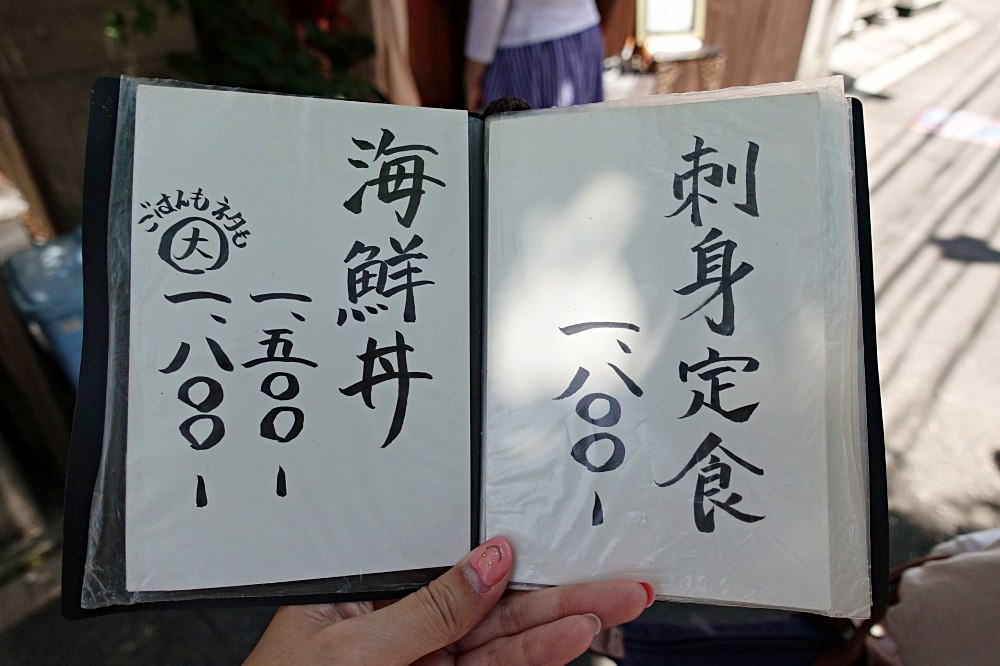 刺身定食
一、八〇〇ー
海鮮丼
一、五〇〇ー
ごはんもネタも
大
一、八〇〇ー